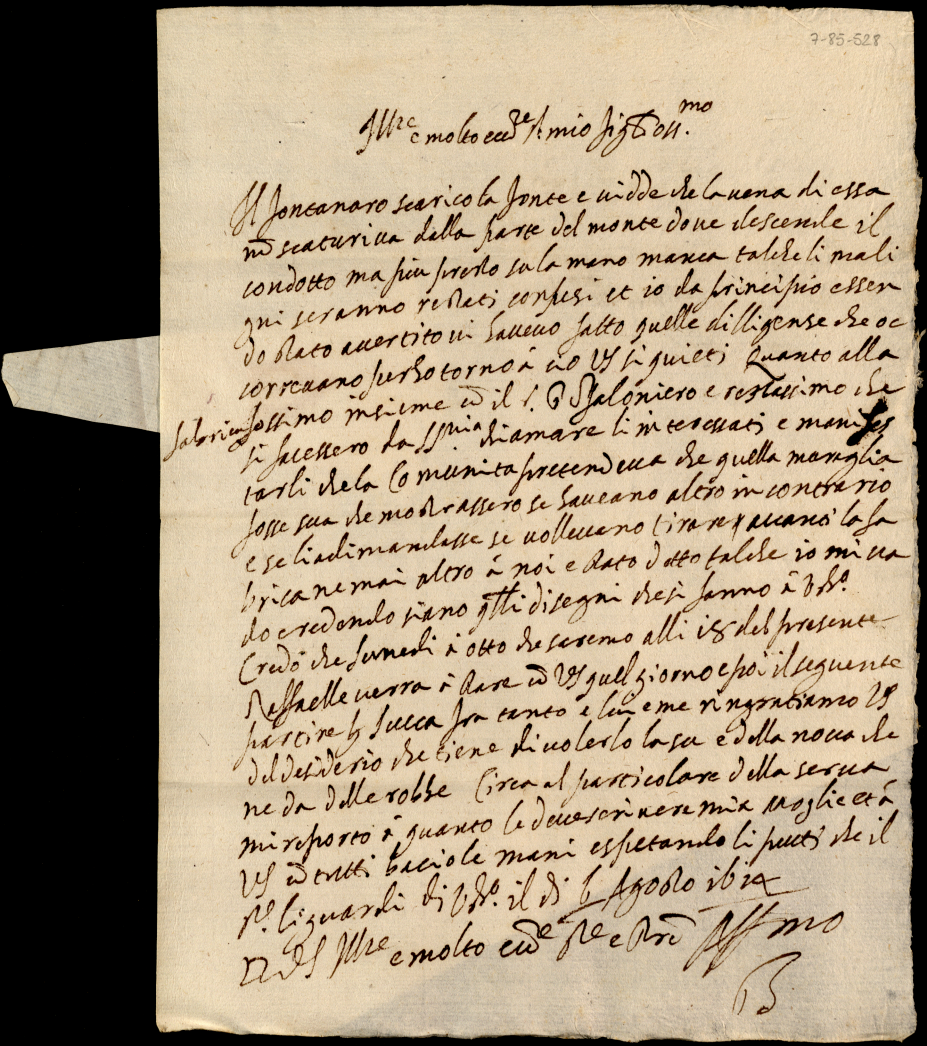 7-85-528
Ill.re e molto ecc.te S.r mio sig.r oss.mo
Il fontanaro scarico la fonte e vidde che la vena di essa
nõ scaturiva dalla parte del monte dove descende il
condotto ma piu presto su la mano manca talche li mali
gni seranno restati confusi et io da principio essen
do stato avertito vi havevo fatto quelle dilligense che oc
correvano perho torno à ciò VS si quieti Quanto alla
fabrica fossimo insieme cõ il s.r Confaloniero e restassimo che
si facessero da chiamare li interessati e manifes
tarli che la Comunita pretendeva che quella muraglia
fosse sua che mostrassero se haveano altro in contrario
e se li adimandasse se vollevano tirare avanti la fa
brica ne mai altro à noi e stato detto talche io mi va
do credendo siano disegni che si fanno à
Credo che lunedi à otto che saremo alli 18 del presente
Raffaelle verra à stare cõ VS quel giorno e poi il seguente
partire Lucca fra tanto e lui e me ringratiamo VS
del desiderio che tiene di volerlo la su e della nova che
ne da delle robbe Circa al particolare della serva
mi reporto à quanto le deve scrivere mia moglie et à
VS cõ tutti bacio le mani espetando li putti che il
S.re li guardi di il di 6 Agosto 1614
D VS Ill.re e molto ecc.te S.re Aff.mo